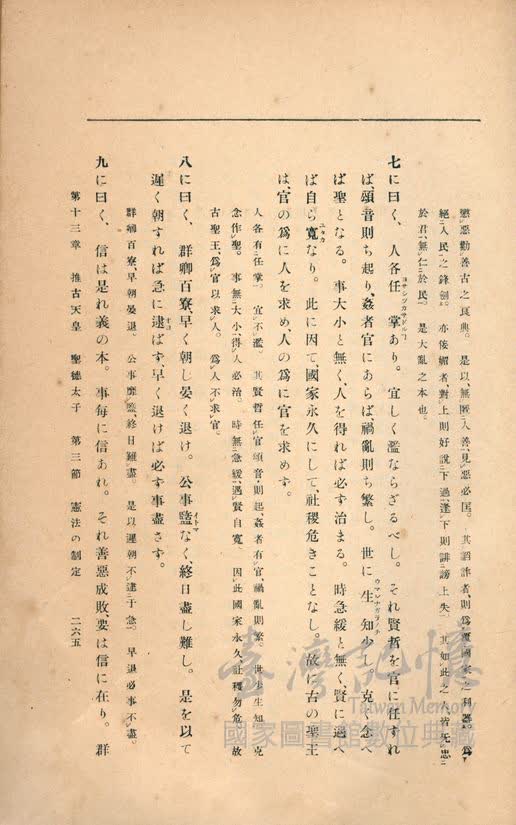 懲惡勸善、古之良典。是以、無匿人善、見惡必匡。其諂詐者、則爲覆國家之利器、爲
絕人民之鋒劍。亦佞媚者、對上則好說下過、逢下則誹謗上失。其如此之人、皆无忠
於君、無仁於民。是大亂之本也。
七に曰く、人各任掌あり。宜しく濫ならざるべし。それ賢哲を官に任すれ
ば、頌音則ち起り、姦者官にあらば、禍亂則ち繁し。世に生知少し、克く念へ
ば聖となる。事大小と無く、人を得れば必す治まる。時急緩と無く、賢に遇へ
ば自ら寬なり。此に因て、國家永久にして、社稷危きことなし。故に古の聖王
は、官の爲に人を求め、人の爲に官を求めす。
人各有任掌。宜不濫。其賢哲任官、頌音則起、姦者有官、禍亂則繁。世少生知、克
念作聖。事無大小、得人必治。時無急緩、遇賢自寬。因此國家永久、社稷勿危。故
古聖王、爲官以求人。爲人不求官。
八に曰く、群卿百寮、早く朝し晏く退け。公事盬なく、終日盡し難し。是を以て
遲く朝すれば急に逮ばす、早く退けば必す事盡さす。
群卿百寮、早朝晏退。公事靡盬、終日難盡。是以遲朝不逮于急。早退必事不盡。
九に曰く、信は是れ義の本。事每に信あれ。それ善惡成敗、要は信に在り。群
第十三章 推古天皇 聖德太子 第三節 憲法の制定 二六五
臺灣記憶
Taiwan Memory
國家圖書館數位典藏